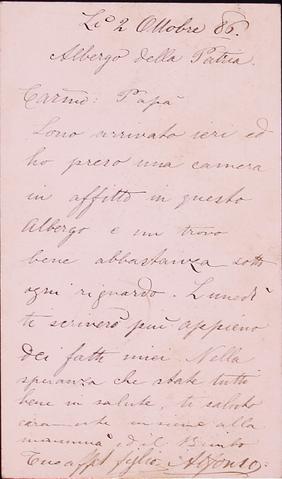 2 Ottobre 86.
Albergo della Patria.
Carmo: Papà
Sono arrivato ieri ed
ho preso una camera
in affitto in questo
Albergo e mi trovo
bene abbastanza sotto
ogni riguardo. Lunedì
ti scriverò più appieno
dei fatti miei. Nella
speranza che state tutti
bene in salute, ti saluto
caramente insieme alla
mamma ed il Bimbo
Tuo afft figlio Alfonso.